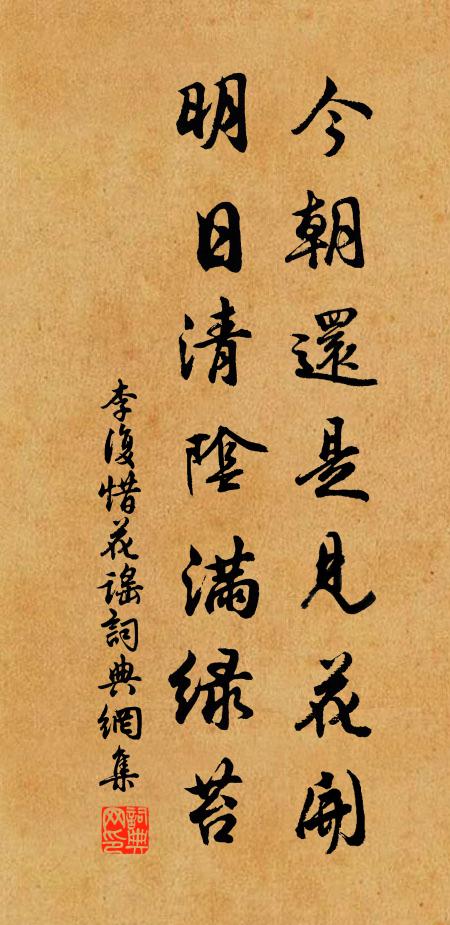 今朝還是見花開
明日清陰滿綠苔
李復惜花謠詞典網集
詞典
网印